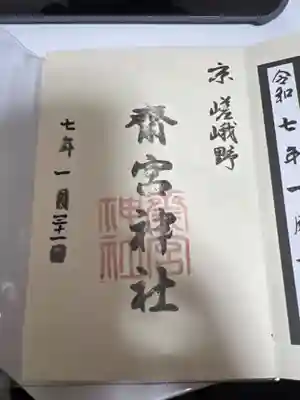 令和七年一月
京 嵯峨野
齋宮神社
齋宮神社
七年一月三十一日